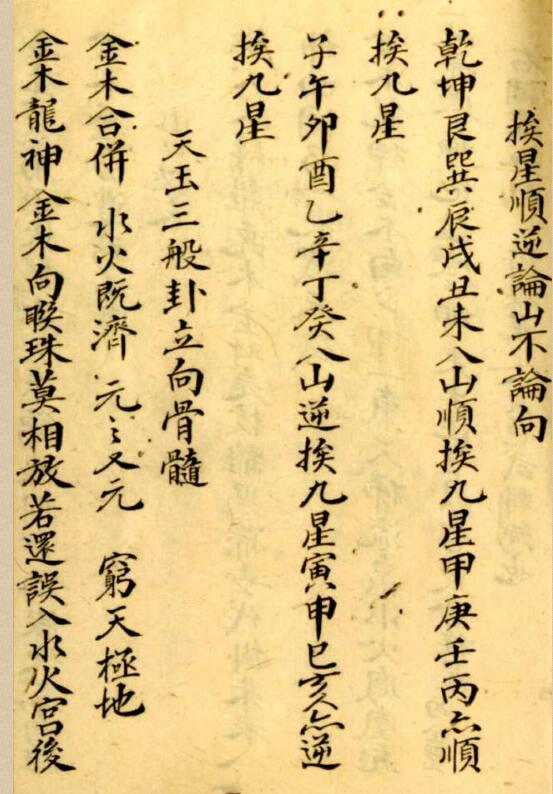 挨星順逆論山不論向
乾坤艮巽辰戌丑未八山順挨九星甲庚壬丙亦順
挨九星
子午卯酉乙辛丁癸八山逆挨九星寅申巳亥亦逆
挨九星
天玉三般卦立向骨髓
金木合併 水火既濟 元々又元 窮天極地
金木龍神金木向聯珠莫相放若還誤入水火宮後